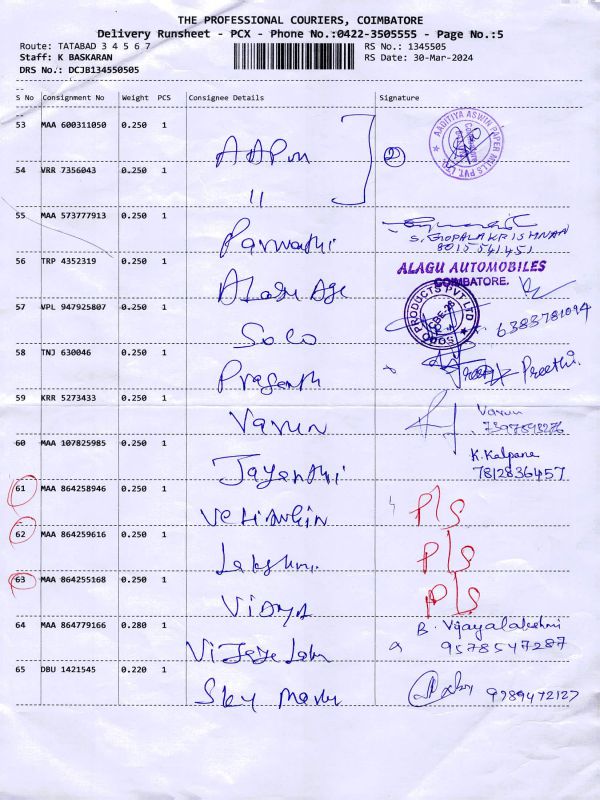 THE PROFESSIONAL COURIERS, COIMBATORE
Delivery Runsheet - PCX - Phone No.:0422-3505555 - Page No.:5
Route: TATABAD 3 4 5 6 7 RS No.: 1345505
Staff: K BASKARAN RS Date: 30-Mar-2024
DRS No.: DCJB134550505
S No Consignment No Weight PCS Consignee Details Signature
53 MAA 600311050 0.250 1 AADITIYA ASWIN PAPER MILLS PVT. LTD.
2
54 VRR 7356043 0.250 1 "
55 MAA 573777913 0.250 1 Parwathi S. GOPALAKRISHNAN
8015541451
56 TRP 4352319 0.250 1 ALAGU AUTOMOBILES
COIMBATORE.
57 VPL 947925807 0.250 1 Solo PRODUCTS PVT LTD 6383781094
58 TNJ 630046 0.250 1 Prasanth Preethi.
59 KRR 5273433 0.250 1 Varun Varun
60 MAA 107825985 0.250 1 Jayenthi K.Kalpana
7812836457
61 MAA 864258946 0.250 1 P/S
62 MAA 864259616 0.250 1 Lakshmi P/S
63 MAA 864255168 0.250 1 Vidya P/S
64 MAA 864779166 0.280 1 B. Vijayalakshmi
9578547287
65 DBU 1421545 0.220 1 Sky 9789472127